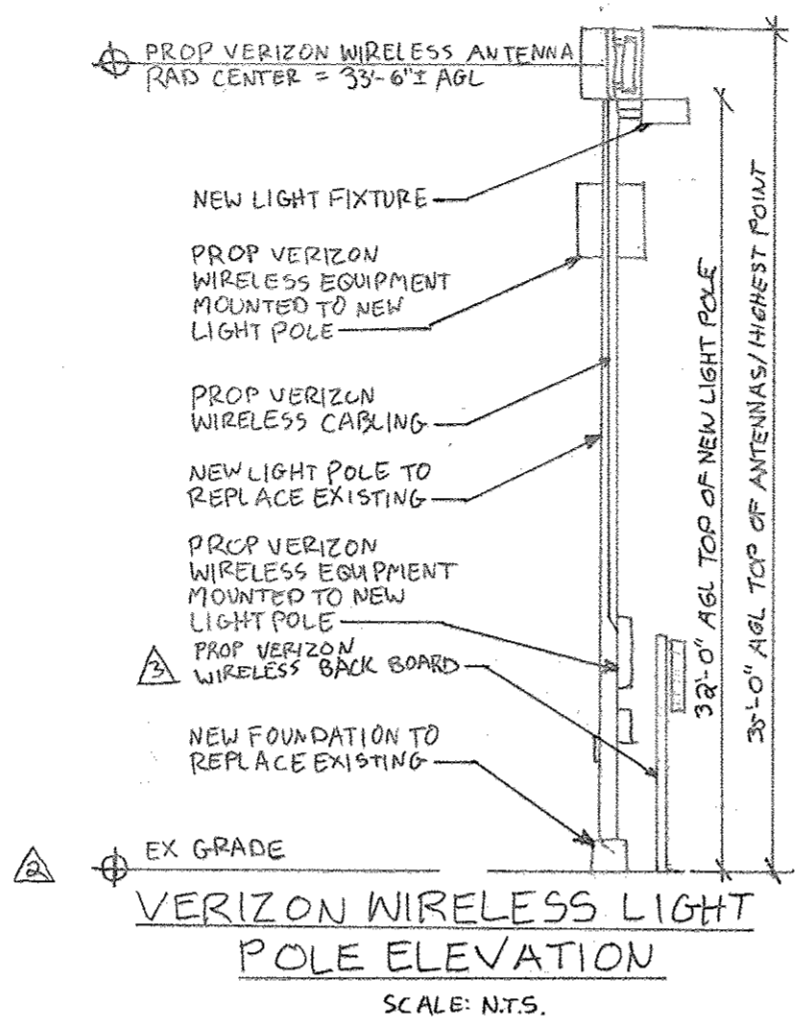 PROP VERIZON WIRELESS ANTENNA
RAD CENTER = 33'-6"± AGL
NEW LIGHT FIXTURE
PROP VERIZON
WIRELESS EQUIPMENT
MOUNTED TO NEW
LIGHT POLE
PROP VERIZON
WIRELESS CABLING
NEW LIGHT POLE TO
REPLACE EXISTING
PROP VERIZON
WIRELESS EQUIPMENT
MOUNTED TO NEW
LIGHT POLE
3
PROP VERIZON
WIRELESS BACK BOARD
NEW FOUNDATION TO
REPLACE EXISTING
32'-0" AGL TOP OF NEW LIGHT POLE
35'-0" AGL TOP OF ANTENNAS/HIGHEST POINT
2
EX GRADE
VERIZON WIRELESS LIGHT
POLE ELEVATION
SCALE: N.T.S.